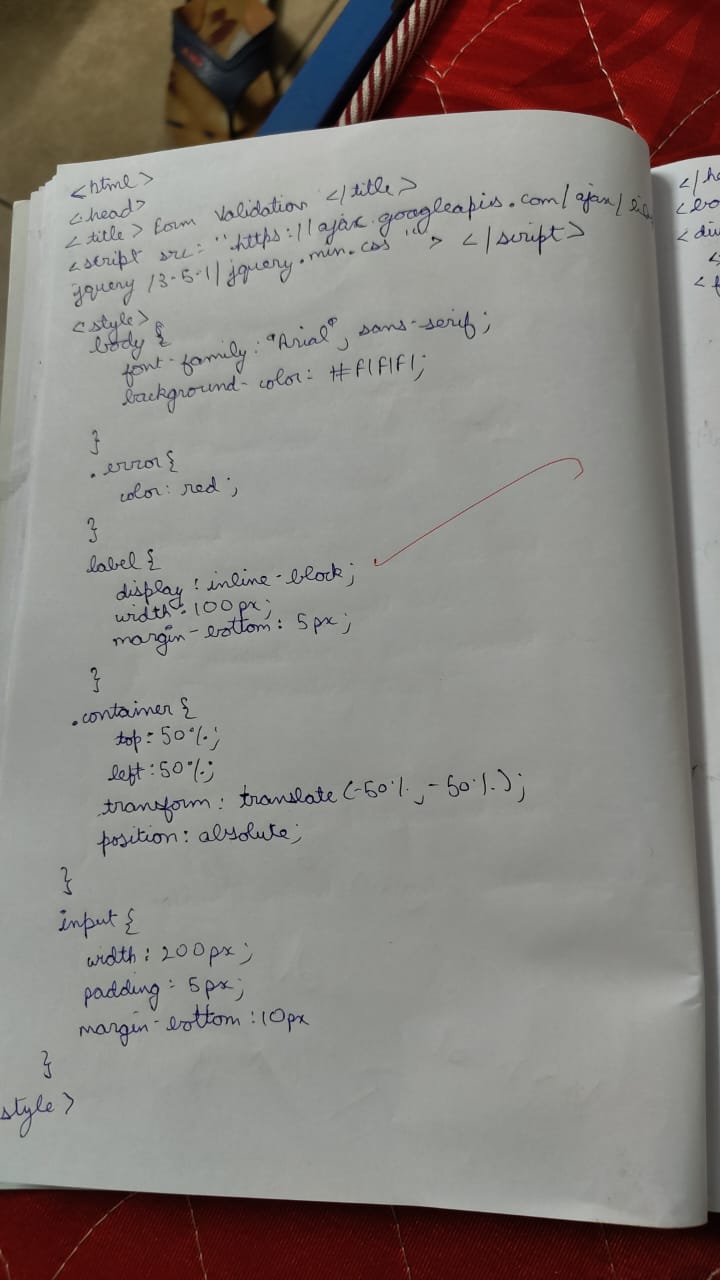 <html>
<head>
<title> Form Validation </title>
<script src="https://ajax.googleapis.com/ajax/
jquery/3-5-1/jquery.min.css"> </script>
<style>
body {
font-family: "Arial", sans-serif;
background-color: #f1f1f1;
}
.error {
color: red;
}
label {
display: inline-block;
width: 100px;
margin-bottom: 5px;
}
.container {
top: 50%;
left: 50%;
transform: translate(-50%, -50%);
position: absolute;
}
input {
width: 200px;
padding: 5px;
margin-bottom: 10px
}
style>